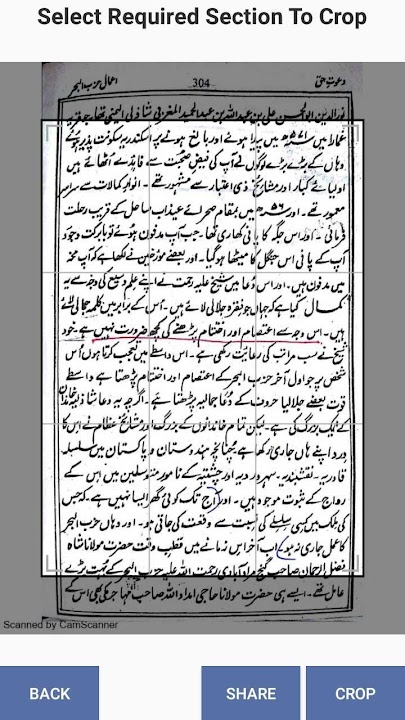 Select Required Section To Crop
دعوتِ حق 304 اعمال حزب البحر
نورالدین ابو الحسن علی بن عبداللہ بن عبدالحمید المغربی شاذلی الیمنی تھا، جو قریہ
میں پیدا ہوئے اور بالغ ہونے پر اسکندریہ سکونت پذیر ہوئے
وہاں کے بڑے بڑے لوگوں نے آپ کی فیض صحبت سے فائدے اُٹھائے ہیں
اولیائے کبار اور مشائخ ذی اعتبار سے مشہور تھے۔ انوار کمالات سے سراسر
معمور تھے۔ اور ۶۵۶ھ میں بمقام صحرائے عیذاب ساحل کے قریب رحلت
فرمائی۔ اور اس جگہ کا پانی کھاری تھا۔ جب آپ مدفون ہوئے تو بابرکت وجود
آپ کے پانی اس جنگل کا میٹھا ہوگیا۔ اور بعضے مورخین نے لکھا ہے کہ آپ مخہ
میں مدفون ہیں۔ اور اس دُعا میں شیخ علیہ رحمت نے اپنے علم وسیع کی وجہ سے یہ
کمال کیا ہے کہ جہاں جو فقرہ جلالی لائے ہیں۔ اُس کے برابر میں کلمہ جمالی لائے
ہیں۔ اس وجہ سے اعتصام اور اختتام پڑھنے کی کچھ ضرورت نہیں ہے۔ خود
شیخ نے سب مراتب کی رعایت رکھی ہے۔ اس واسطے میں تعجب کرتا ہوں اُس
شخص پر جو اول آخر حزب البحر کے اعتصام اور اختتام پڑھتا ہے واسطے
قوت بعضے جلالیا حروف کے دُعا جمالیہ پڑھتا ہے۔ اگرچہ یہ دعا شاذلیہ خاندان
کے ایک بزرگ کی ہے۔ لیکن تمام خاندانوں کے بزرگ اور مشائخ عظام نے اس کا
ورد اپنے ہاں جاری رکھا ہے چنانچہ ہندوستان و پاکستان میں سلسلہ
قادریہ۔ نقشبندیہ۔ سہروردیہ اور چشتیہ کے نامور متوسلین میں اس کے
رواج کے ثبوت موجود ہیں۔ اور آج تک کوئی گھر ایسا نہیں ہے۔ کہ جس
کی بلکہ میں کسی سلسلے کی نسبت سے وقعت کی جاتی ہو۔ اور وہاں حزب البحر
کا عمل جاری نہ ہو اب آخر اس زمانے میں قطب وقت حضرت مولانا شاہ
فضل الرحمان صاحب گنج مراد آبادی رحمت اللہ علیہ حزب البحر کے بہت بڑے
عامل تھے۔ ایسے ہی حضرت مولانا حاجی امداد اللہ صاحب مہاجر مکی بھی اس کے
Scanned by CamScanner
BACK
SHARE
CROP